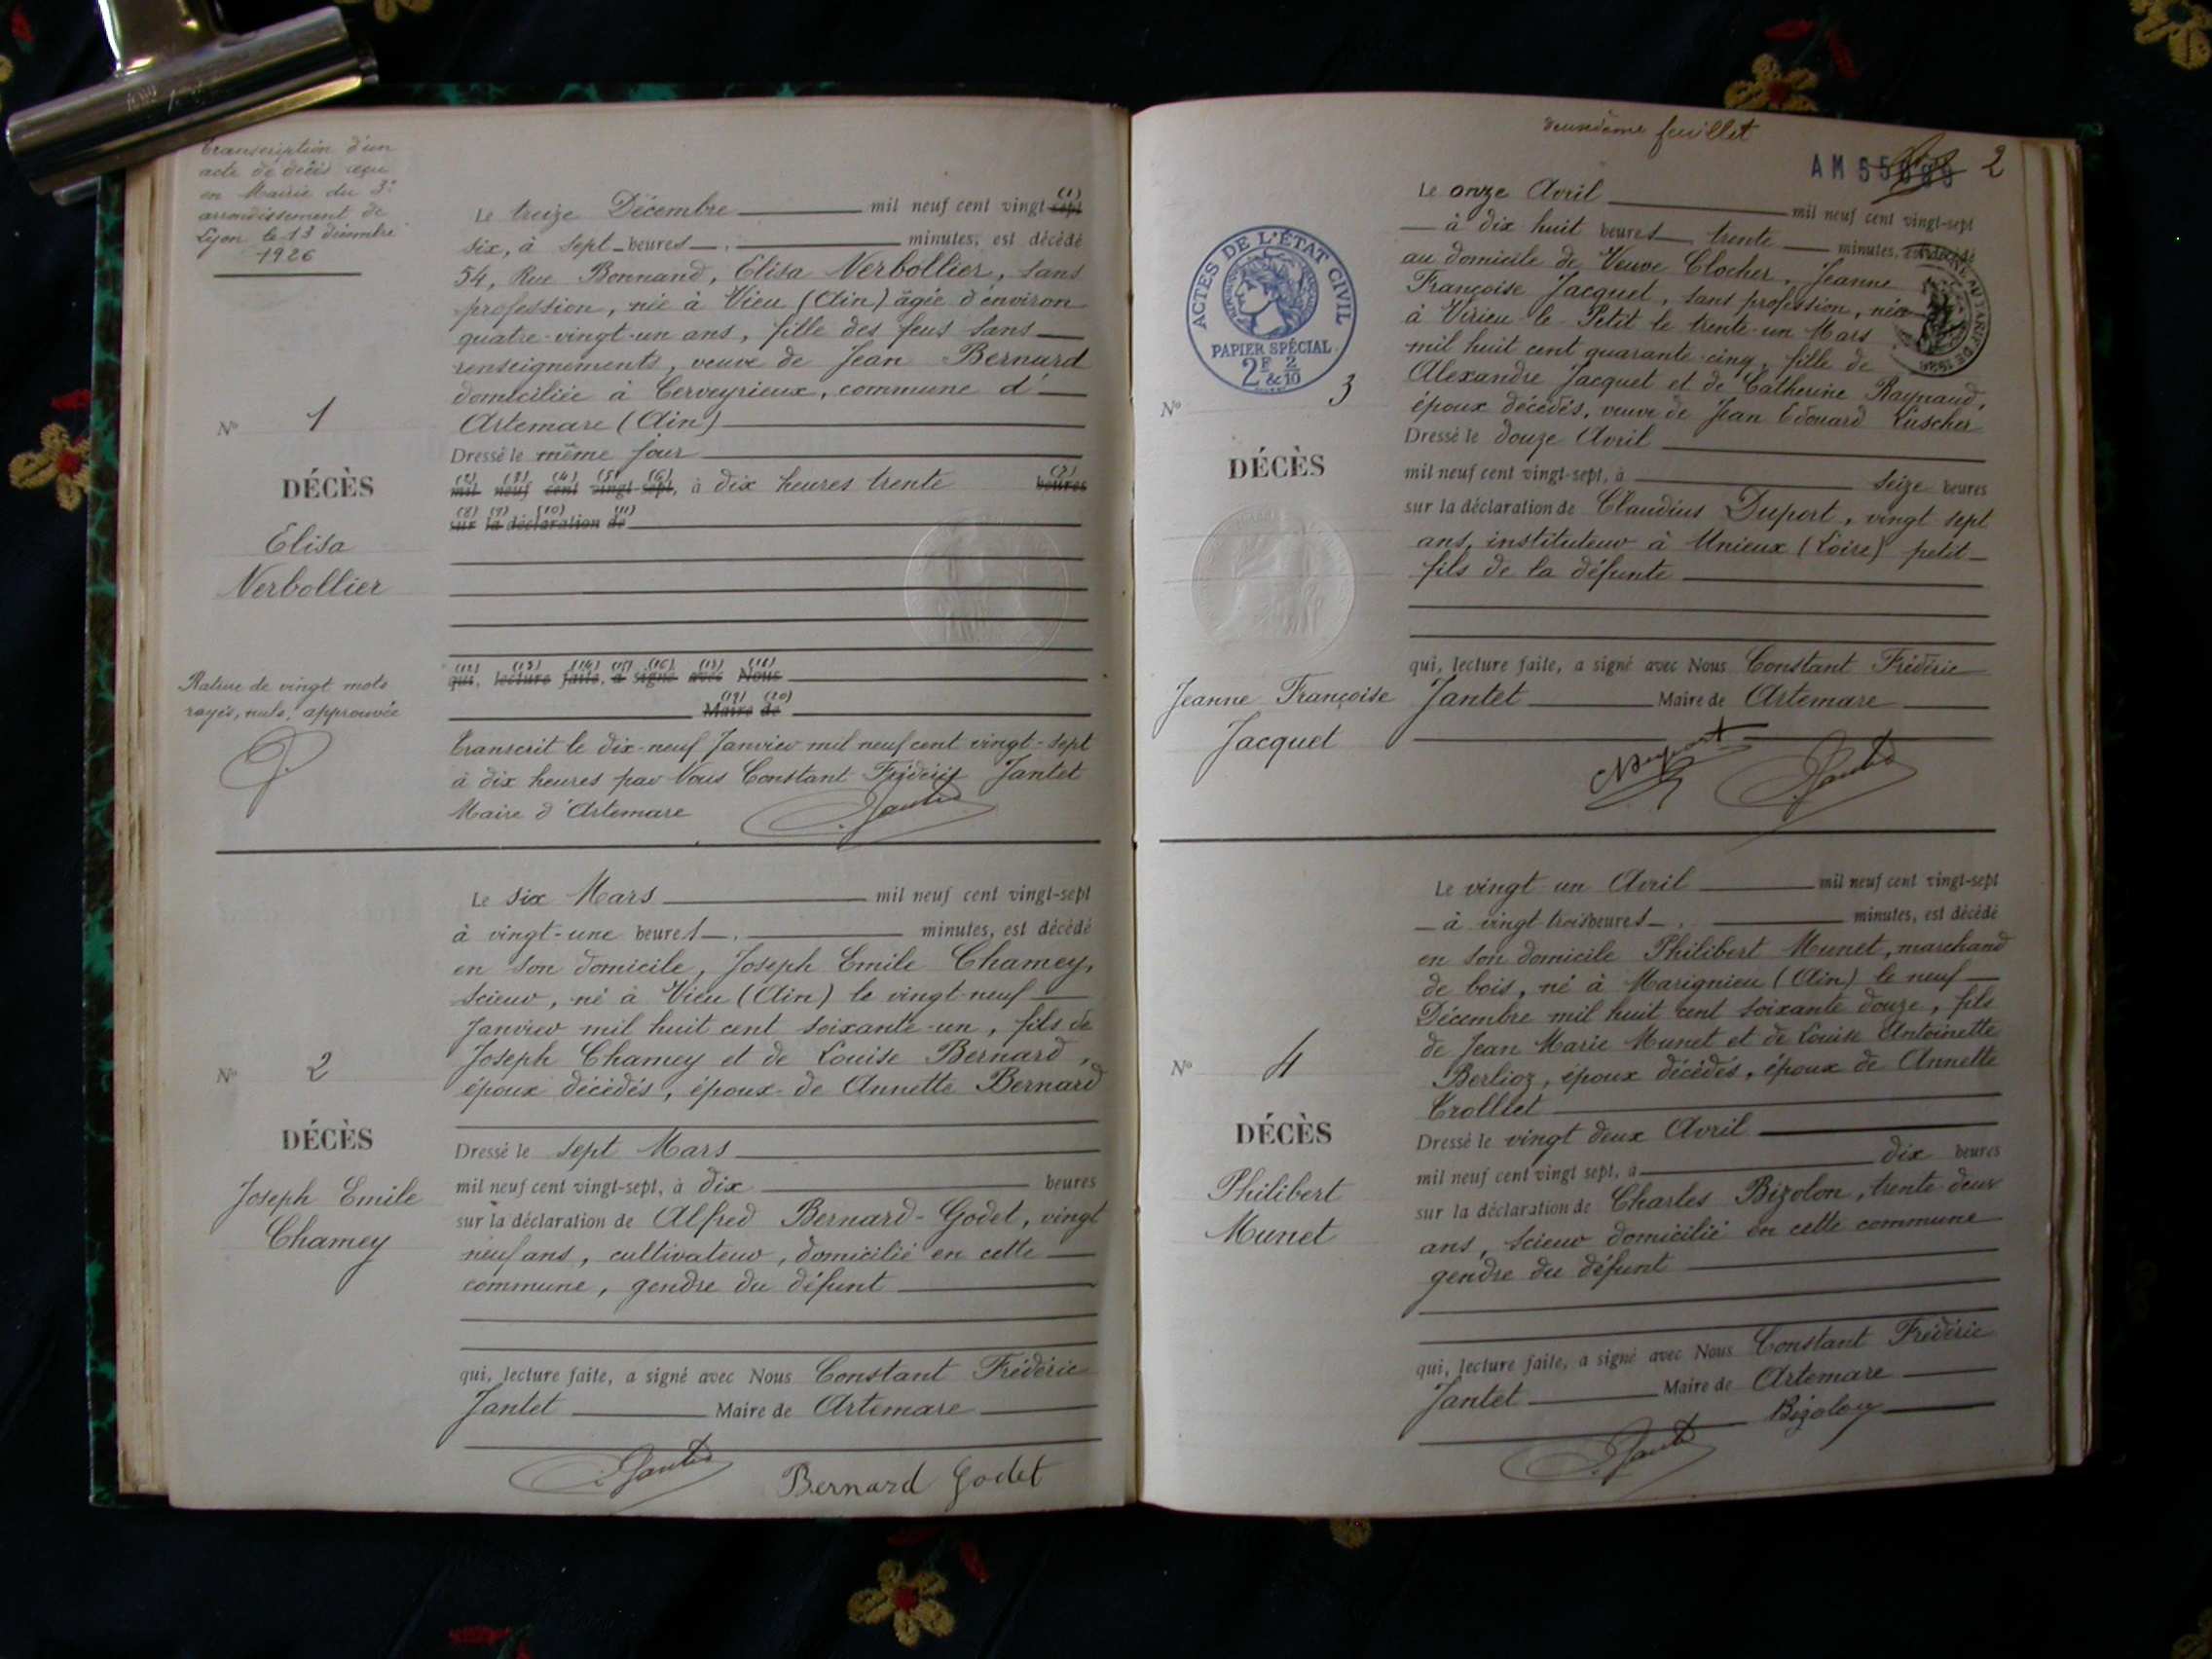 Transcription d'un
acte de décès reçu
en Mairie du 3e
arrondissement de
Lyon le 13 décembre
1926
Le treize Décembre mil neuf cent vingt sept (1)
six, à sept heures minutes, est décédé
54, Rue Bonnand, Elisa Nerbollier, sans
profession, née à Vieu (Ain) âgée d'environ
quatre-vingt-un ans, fille des feus sans
renseignements, veuve de Jean Bernard
domiciliée à Cerveyrieux, commune d'
Artemare (Ain)
Dressé le même jour
(2) (3) (4) (5) (6) (7)
mil neuf cent vingt-sept, à dix heures trente heures
(8) (9) (10) (11)
sur la déclaration de
(12) (13) (14) (15) (16) (17) (18)
qui, lecture faite, a signé avec Nous
(19) (20)
Maire de
Transcrit le dix-neuf Janvier mil neuf cent vingt-sept
à dix heures par Nous Constant Frédéric Jantet
Maire d'Artemare Jantet
N° 1
DÉCÈS
Elisa
Nerbollier
Rature de vingt mots
rayés, nuls, approuvée
Le six Mars mil neuf cent vingt-sept
à vingt-une heures minutes, est décédé
en son domicile, Joseph Emile Chamey,
scieur, né à Vieu (Ain) le vingt-neuf
Janvier mil huit cent soixante-un, fils de
Joseph Chamey et de Louise Bernard,
époux décédés, époux de Annette Bernard
Dressé le sept Mars
mil neuf cent vingt-sept, à dix heures
sur la déclaration de Alfred Bernard-Godet, vingt
neuf ans, cultivateur, domicilié en cette
commune, gendre du défunt
qui, lecture faite, a signé avec Nous Constant Frédéric
Jantet Maire de Artemare
Jantet Bernard Godet
N° 2
DÉCÈS
Joseph Emile
Chamey
deuxième feuillet
AM 2
Le onze Avril mil neuf cent vingt-sept
à dix huit heures trente minutes, est décédé
au domicile de Veuve Clocher, Jeanne
Françoise Jacquet, sans profession, née
à Virieu-le-Petit le trente-un Mars
mil huit cent quarante-cinq, fille de
Alexandre Jacquet et de Catherine Raynaud,
époux décédés, veuve de Jean Edouard Luscher
Dressé le douze Avril
mil neuf cent vingt-sept, à seize heures
sur la déclaration de Claudius Duport, vingt sept
ans, instituteur à Unieux (Loire) petit-
fils de la défunte
qui, lecture faite, a signé avec Nous Constant Frédéric
Jantet Maire de Artemare
Duport Jantet
ACTES DE L'ÉTAT CIVIL
PAPIER SPÉCIAL
2F & 2/10
N° 3
DÉCÈS
Jeanne Françoise
Jacquet
Le vingt un Avril mil neuf cent vingt-sept
à vingt trois heures minutes, est décédé
en son domicile Philibert Munet, marchand
de bois, né à Marignieu (Ain) le neuf
Décembre mil huit cent soixante douze, fils
de Jean Marie Munet et de Louise Antoinette
Berlioz, époux décédés, époux de Annette
Trolliet
Dressé le vingt deux Avril
mil neuf cent vingt sept, à dix heures
sur la déclaration de Charles Bizolon, trente-deux
ans, scieur domicilié en cette commune
gendre du défunt
qui, lecture faite, a signé avec Nous Constant Frédéric
Jantet Maire de Artemare
Jantet Bizolon
N° 4
DÉCÈS
Philibert
Munet